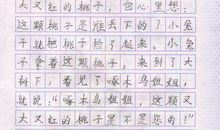 大又红的桃子，它心里想：
这颗桃子是谁丢下的？小兔
子就把桃子捡了起来。小兔
子拿着这颗桃子，来到了大
树下，看见了啄木鸟姐姐，
就说：“啄木鸟姐姐，这颗又
大又红的桃子是不是您的？”